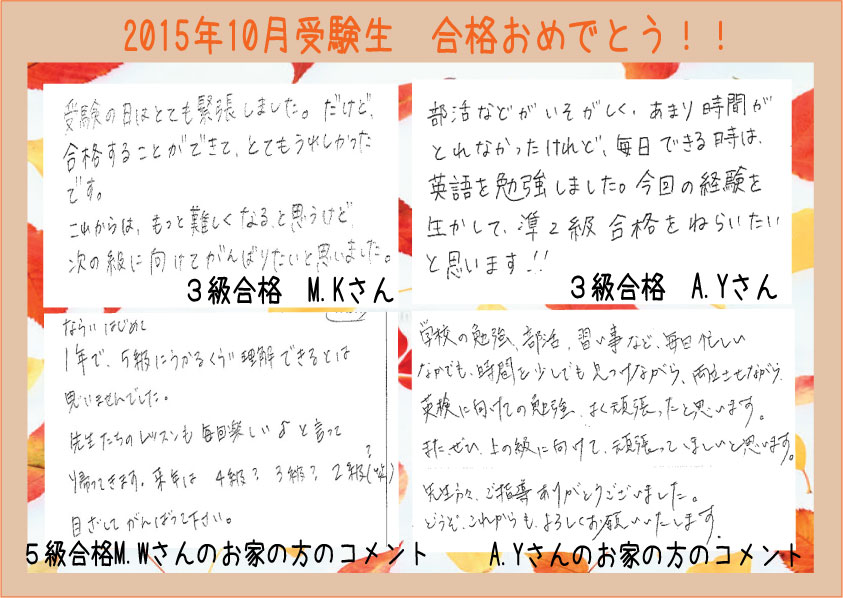 2015年10月受験生　合格おめでとう！！
受験の日はとても緊張しました。だけど、
合格することができて、とてもうれしかった
です。
これからは、もっと難しくなると思うけど、
次の級に向けてがんばりたいと思いました。
３級合格　M.Kさん
部活などがいそがしく、あまり時間が
とれなかったけれど、毎日できる時は、
英語を勉強しました。今回の経験を
生かして、準２級合格をねらいたい
と思います!!
３級合格　A.Yさん
ならいはじめて
1年で、5級にうかるくらい理解できるとは
思いませんでした。
先生たちのレッスンも毎回楽しいよと言って
帰ってきます。来年は 4級？ 3級？ 2級？(笑)
目ざしてがんばって下さい。
５級合格M.Wさんのお家の方のコメント
学校の勉強、部活、習い事など、毎日忙しい
なかでも、時間を少しでも見つけながら、両立させながら、
英検に向けての勉強、よく頑張ったと思います。
またぜひ、上の級に向けて、頑張ってほしいと思います。
先生方々、ご指導ありがとうございました。
どうぞ、これからも、よろしくお願いいたします。
A.Yさんのお家の方のコメント